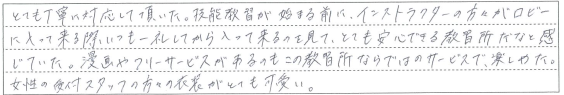 とても丁寧に対応して頂いた。技能教習が始まる前に、インストラクターの方々がロビー
に入って来る際、いつも一礼してから入って来るのを見て、とても安心できる教習所だなと感
じていた。漫画やフリーサービスがあるのもこの教習所ならではのサービスで、楽しめた。
女性の受付スタッフの方々の衣装がとても可愛い。